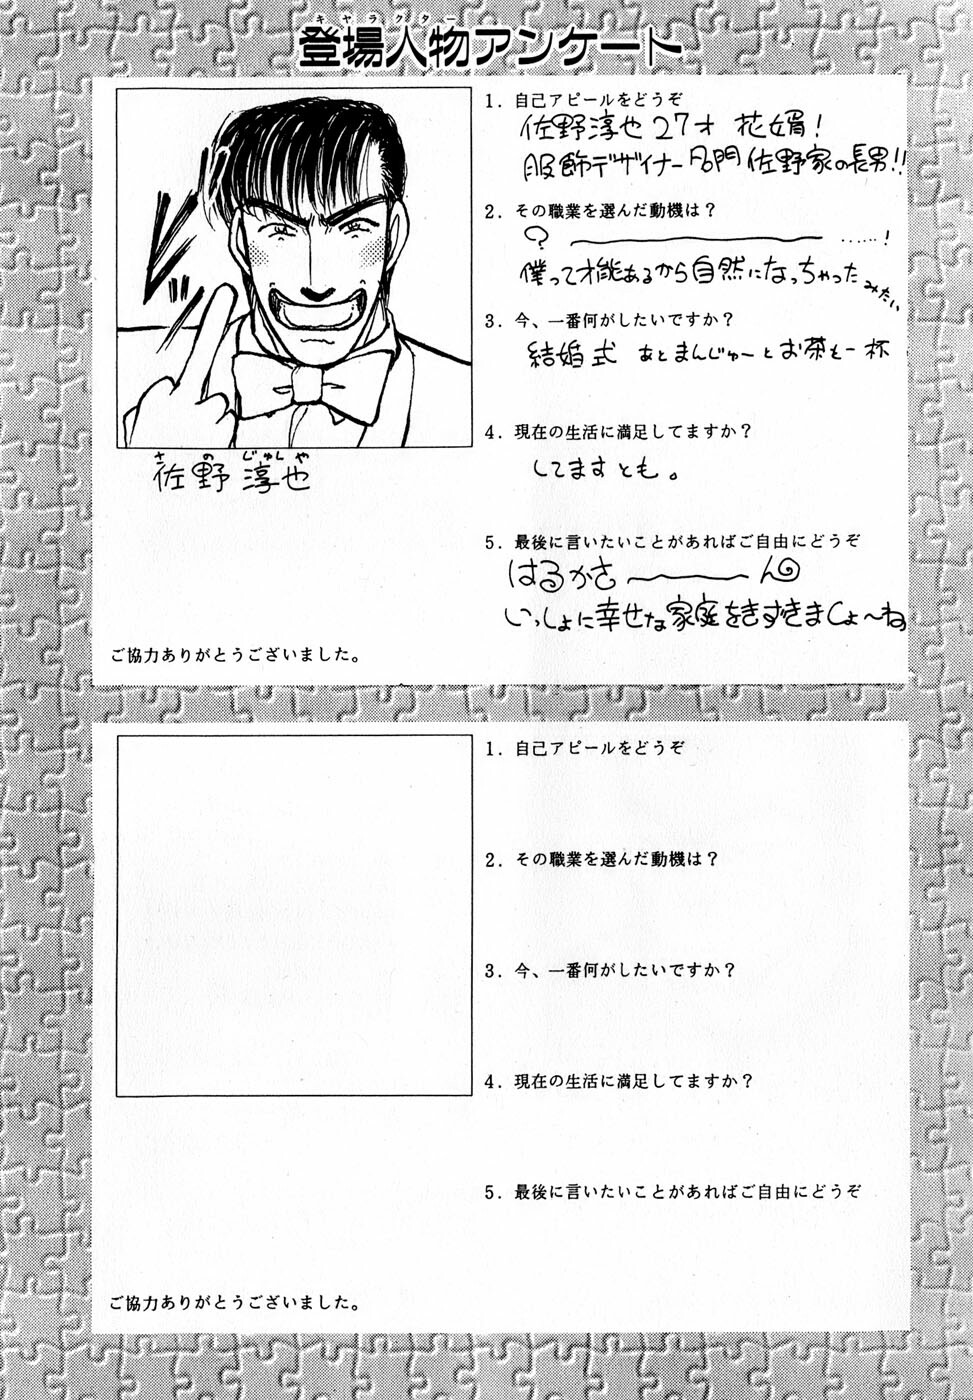 キャラクター
登場人物アンケート
1．自己アピールをどうぞ
佐野淳也27才 花婿！
服飾デザイナー名門佐野家の長男!!
2．その職業を選んだ動機は？
？ ――――― ……！
僕って才能あるから自然になっちゃったみたい
3．今、一番何がしたいですか？
結婚式 あとまんじゅーとお茶を一杯
4．現在の生活に満足してますか？
してますとも。
5．最後に言いたいことがあればご自由にどうぞ
はるかさ〜〜〜ん
いっしょに幸せな家庭をきずきましょ〜ね
さのじゅんや
佐野淳也
ご協力ありがとうございました。
1．自己アピールをどうぞ
2．その職業を選んだ動機は？
3．今、一番何がしたいですか？
4．現在の生活に満足してますか？
5．最後に言いたいことがあればご自由にどうぞ
ご協力ありがとうございました。